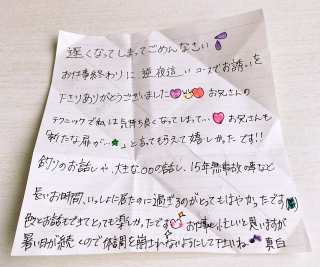 遅くなってしまってごめんなさい
お仕事終わりに、逆夜這いコースでお誘いを
下さりありがとうございました お兄さんの
テクニックで私は気持ち良くなってしまって… お兄さんも
「新たな扉が…」と言ってもらえて嬉しかったです!!
釣りのお話しや、大きな○○の話し、15年無事故の事など
長いお時間、いっしょに居たのに過ぎるのがとってもはやかったです
色々とお話もできてとっても楽しかったです お仕事忙しいと思いますが
暑い日が続くので体調を崩されないようにして下さいね 真白